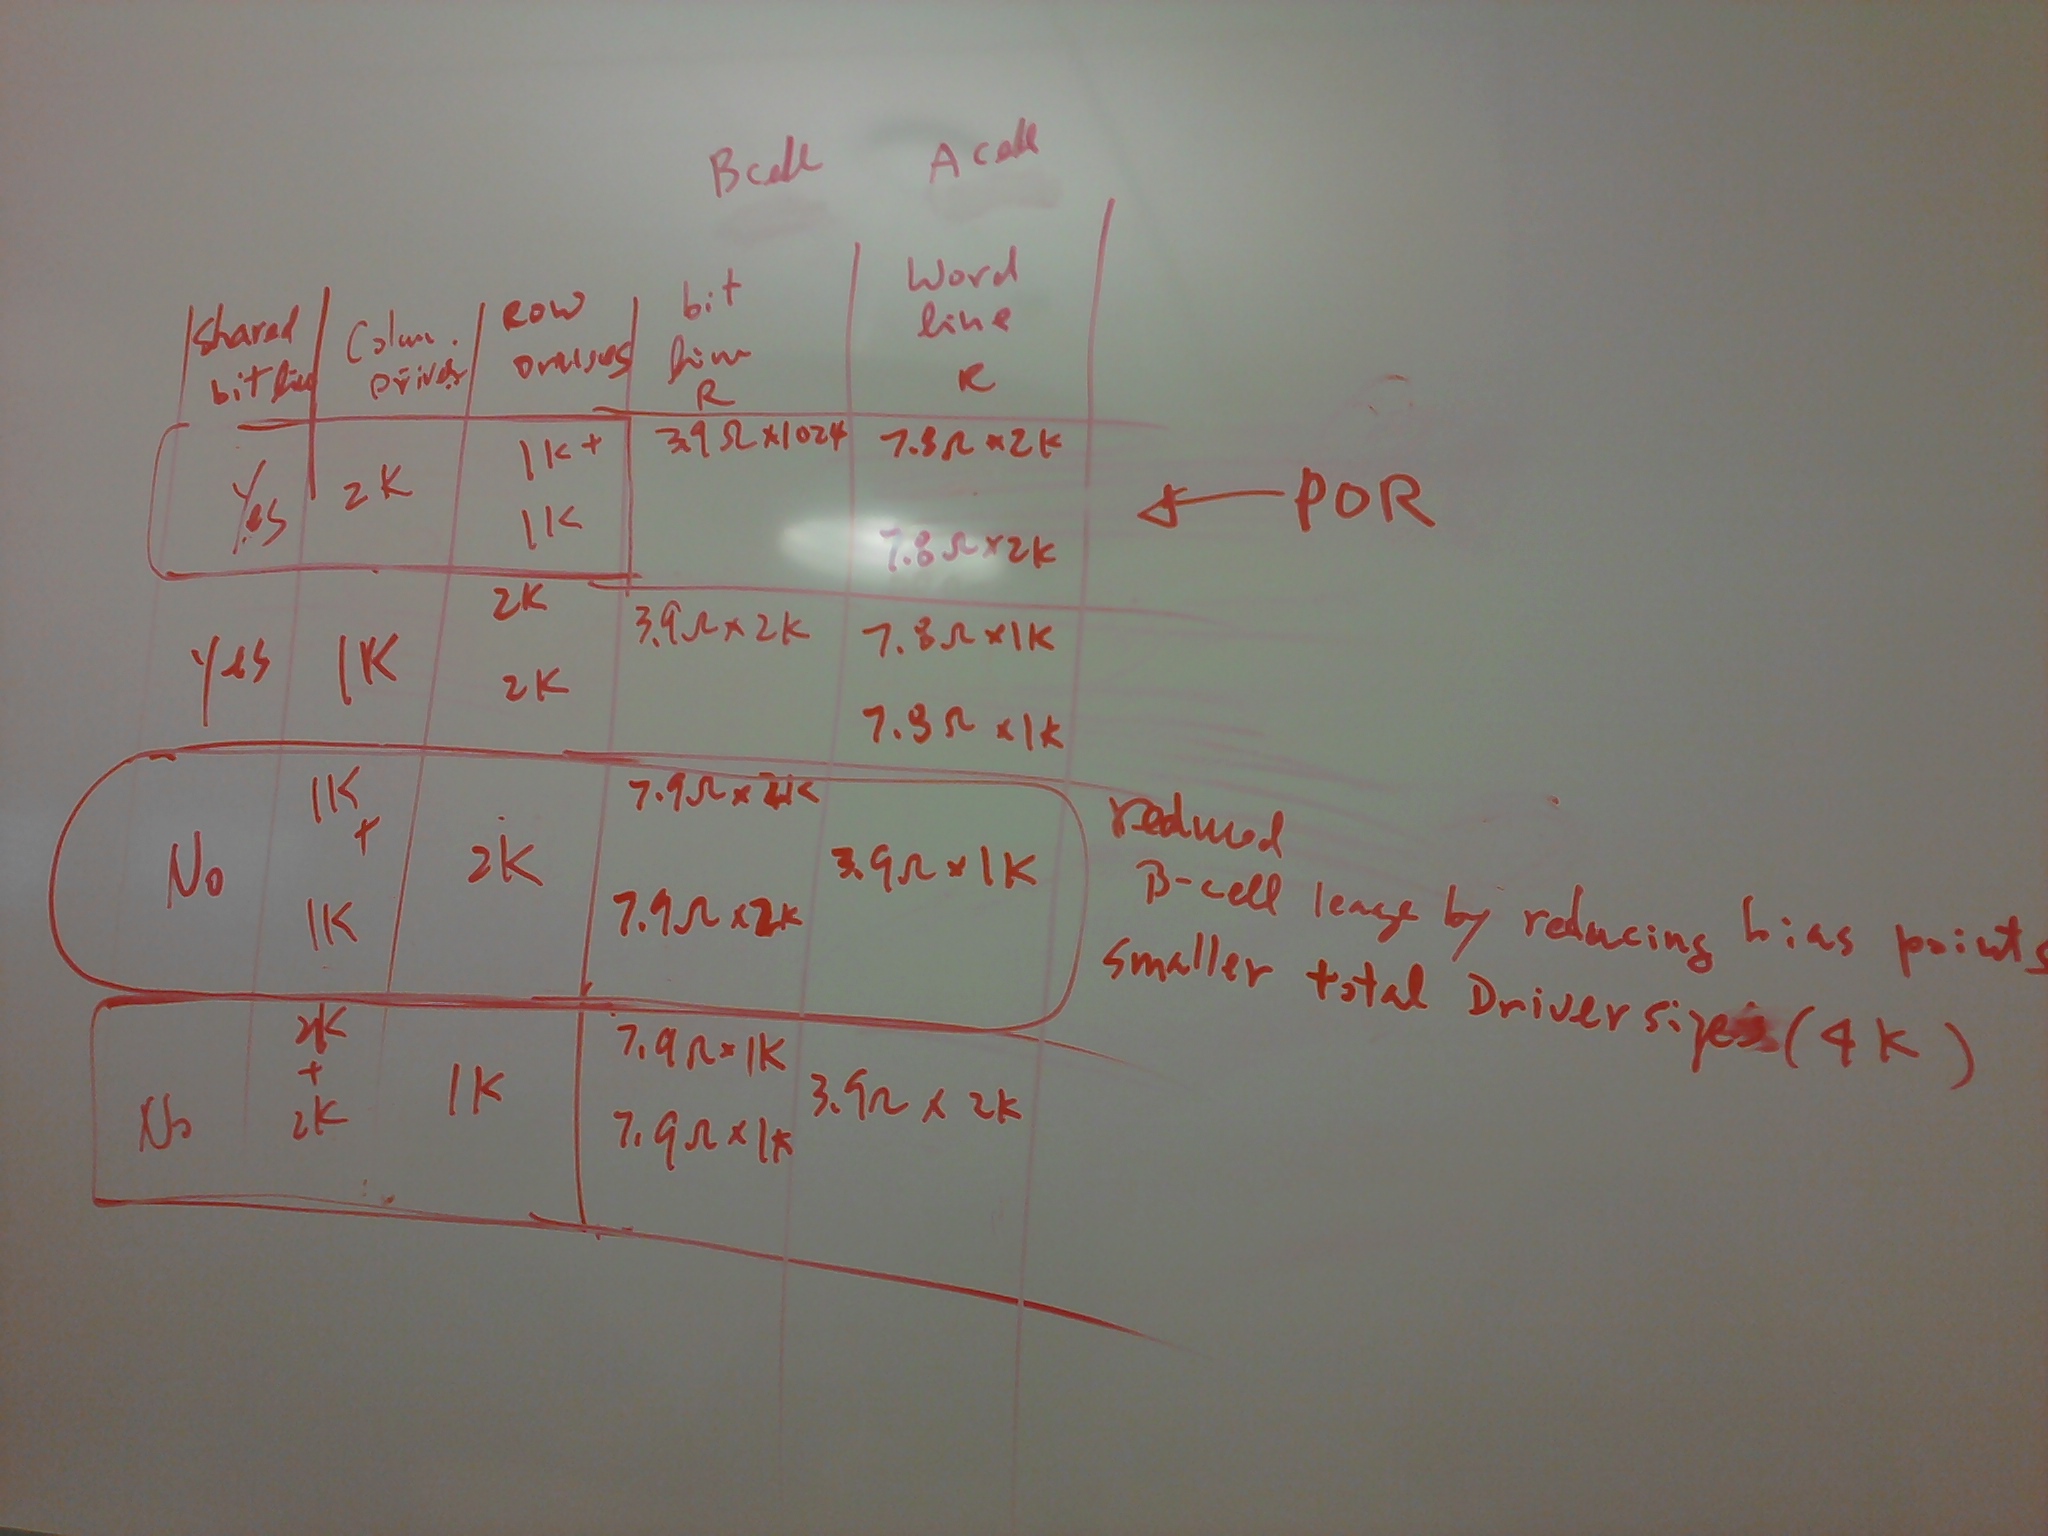 B cell A cell
shared bit line Colum. Driver Row Drivers bit line R Word line R
Yes 2K 1K + 1K 3.9Ω x 1024 7.8Ω x 2K
7.8Ω x 2K
← POR
Yes 1K 2K 2K 3.9Ω x 2K 7.8Ω x 1K
7.8Ω x 1K
No 1K + 1K 2K 7.9Ω x 2K 3.9Ω x 1K
7.9Ω x 2K
reduced
B-cell by reducing bias points
smaller total Driver sizes (4K)
No 2K + 2K 1K 7.9Ω x 1K 3.9Ω x 2K
7.9Ω x 1K